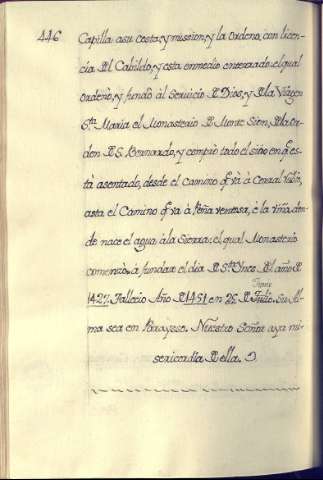 446
Capilla asu costa, y mission, y la ordeno, con licen-
cia Del Cabildo, y esta enmedio enterrado. el qual
ordeno, y fundò al Servicio D Dios, y D la Virgen
Sta. Maria el Monasterio D Monte Sion, D la Or-
den D S. Bernardo, y comprò todo el sitio en q.e es-
tà asentado, desde el Camino q.e và à Corral Rubio,
asta el Camino q.e và à Peña ventosa, è la viña, don-
de nace el agua à la Sierra: el qual Monasterio
comenzò à fundar el dia D Sta. Ynes Del año D
1427. Fallecio Año D 1451 en 26 D Julio. Su Al-
ma sea en Parayso. Nuestro Señor aya mi-
sericordia D ella.